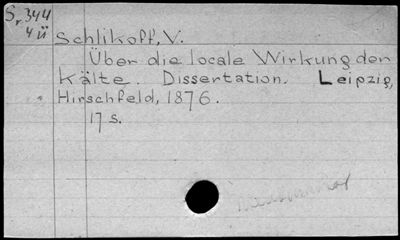 Sr.344
4ü
Schlikoff, V.
Über die locale Wirkung der
Kälte. Dissertation. Leipzig,
Hirschfeld, 1876.
17 s.